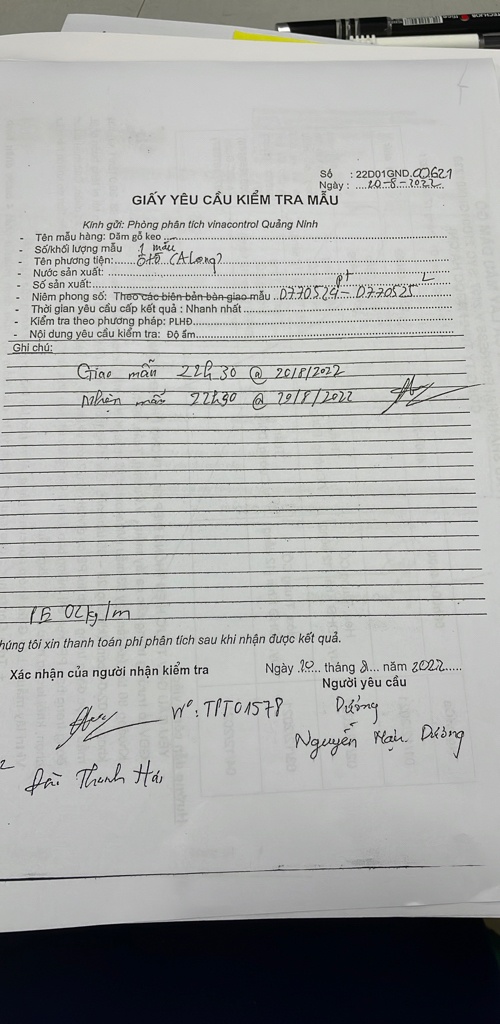 Số : 22D01GND.00621
Ngày : ....20-8-2022
GIẤY YÊU CẦU KIỂM TRA MẪU
Kính gửi: Phòng phân tích vinacontrol Quảng Ninh
- Tên mẫu hàng: Dăm gỗ keo
- Số/khối lượng mẫu 1 mẫu
- Tên phương tiện: ôtô (A Long)
- Nước sản xuất:
- Số sản xuất:
- Niêm phong số: Theo các biên bản bàn giao mẫu ..0770524 pt - 0770525 L
- Thời gian yêu cầu cấp kết quả : Nhanh nhất
- Kiểm tra theo phương pháp: PLHĐ
- Nội dung yêu cầu kiểm tra: Độ ẩm
Ghi chú:
Giao mẫu 22h30 @ 20/8/2022
Nhận mẫu 22h30 @ 20/8/2022
02kg/m
húng tôi xin thanh toán phí phân tích sau khi nhận được kết quả.
Xác nhận của người nhận kiểm tra
Ngày 20 tháng 8 năm 2022
Người yêu cầu
Nº: TPT01578
Dướng
Nguyễn Dướng
Thanh Hải